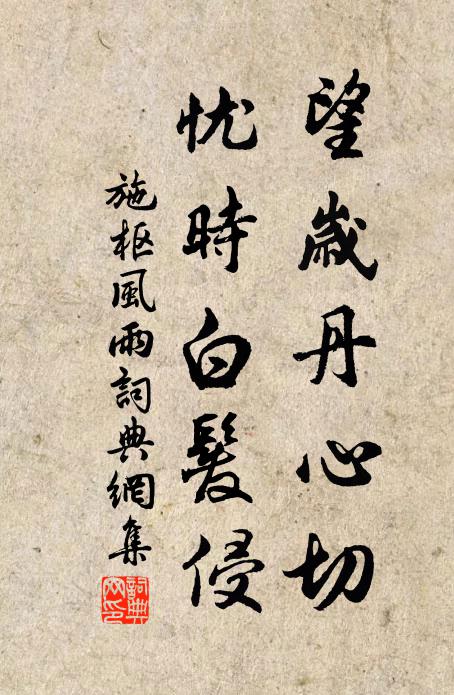 望歲丹心切
忧時白髮侵
施枢風雨詞典網集
詞典
网印